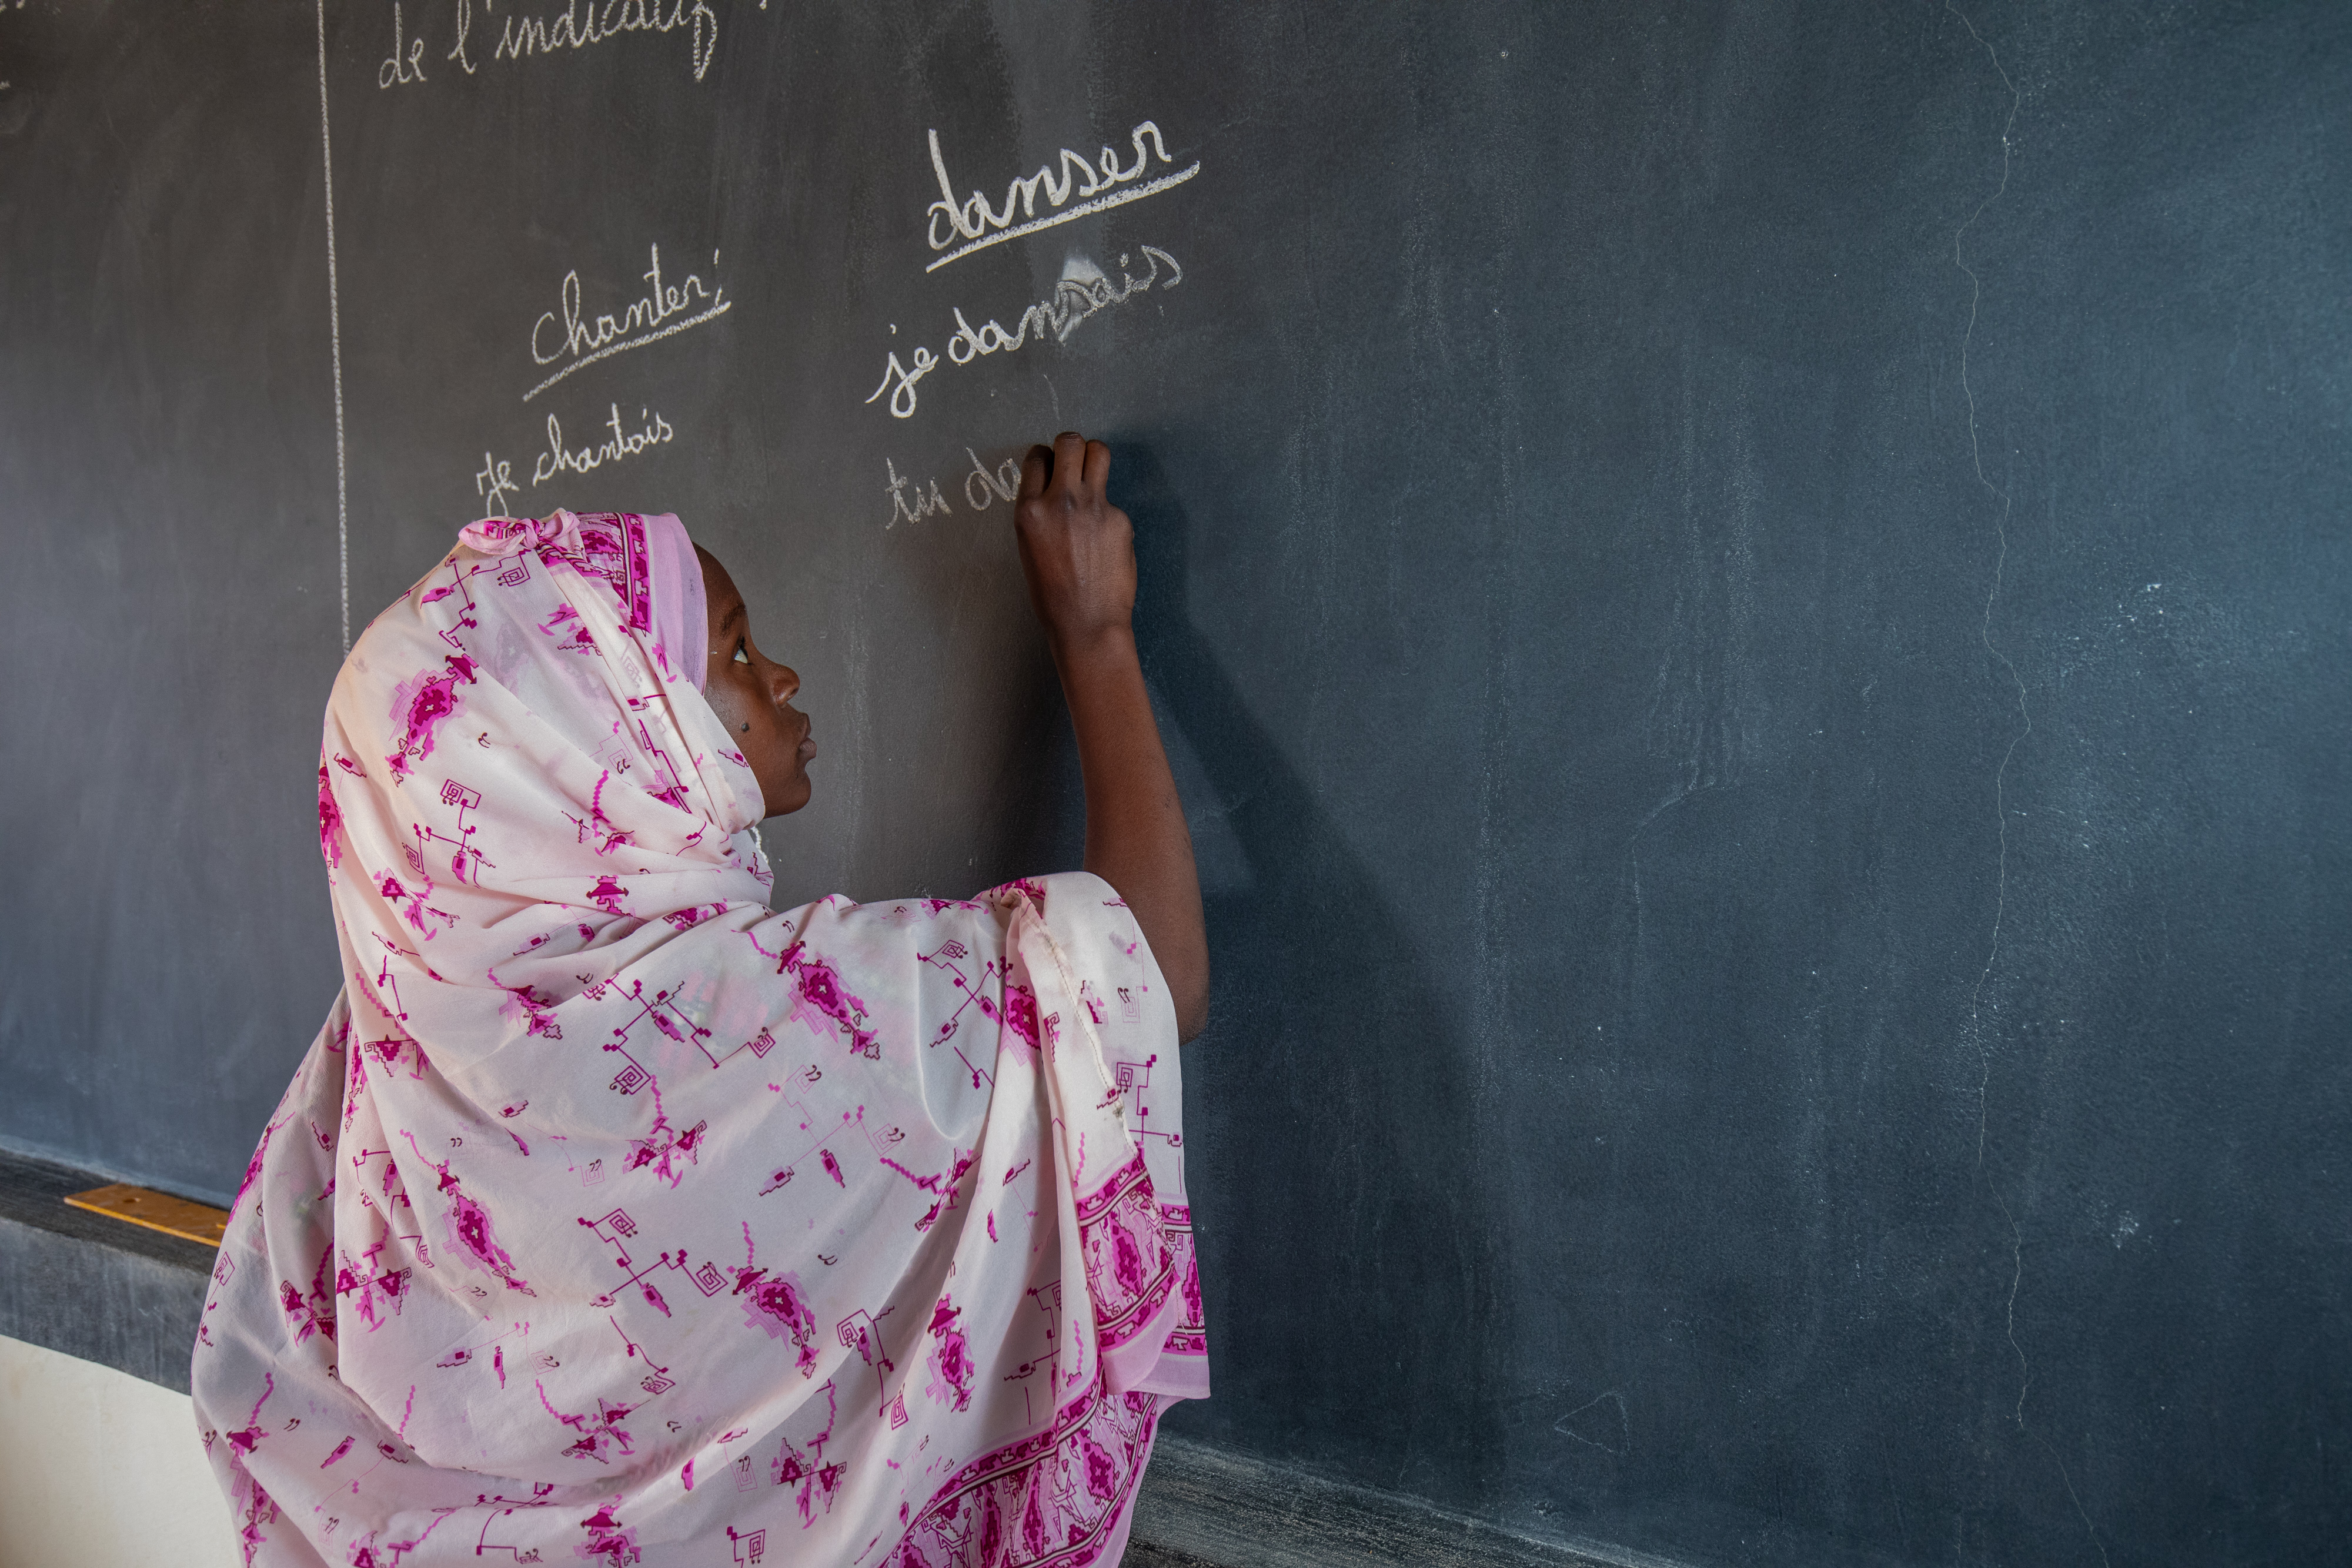 de l'indicatif
chanter
je chantais
danser
je dansais
tu da